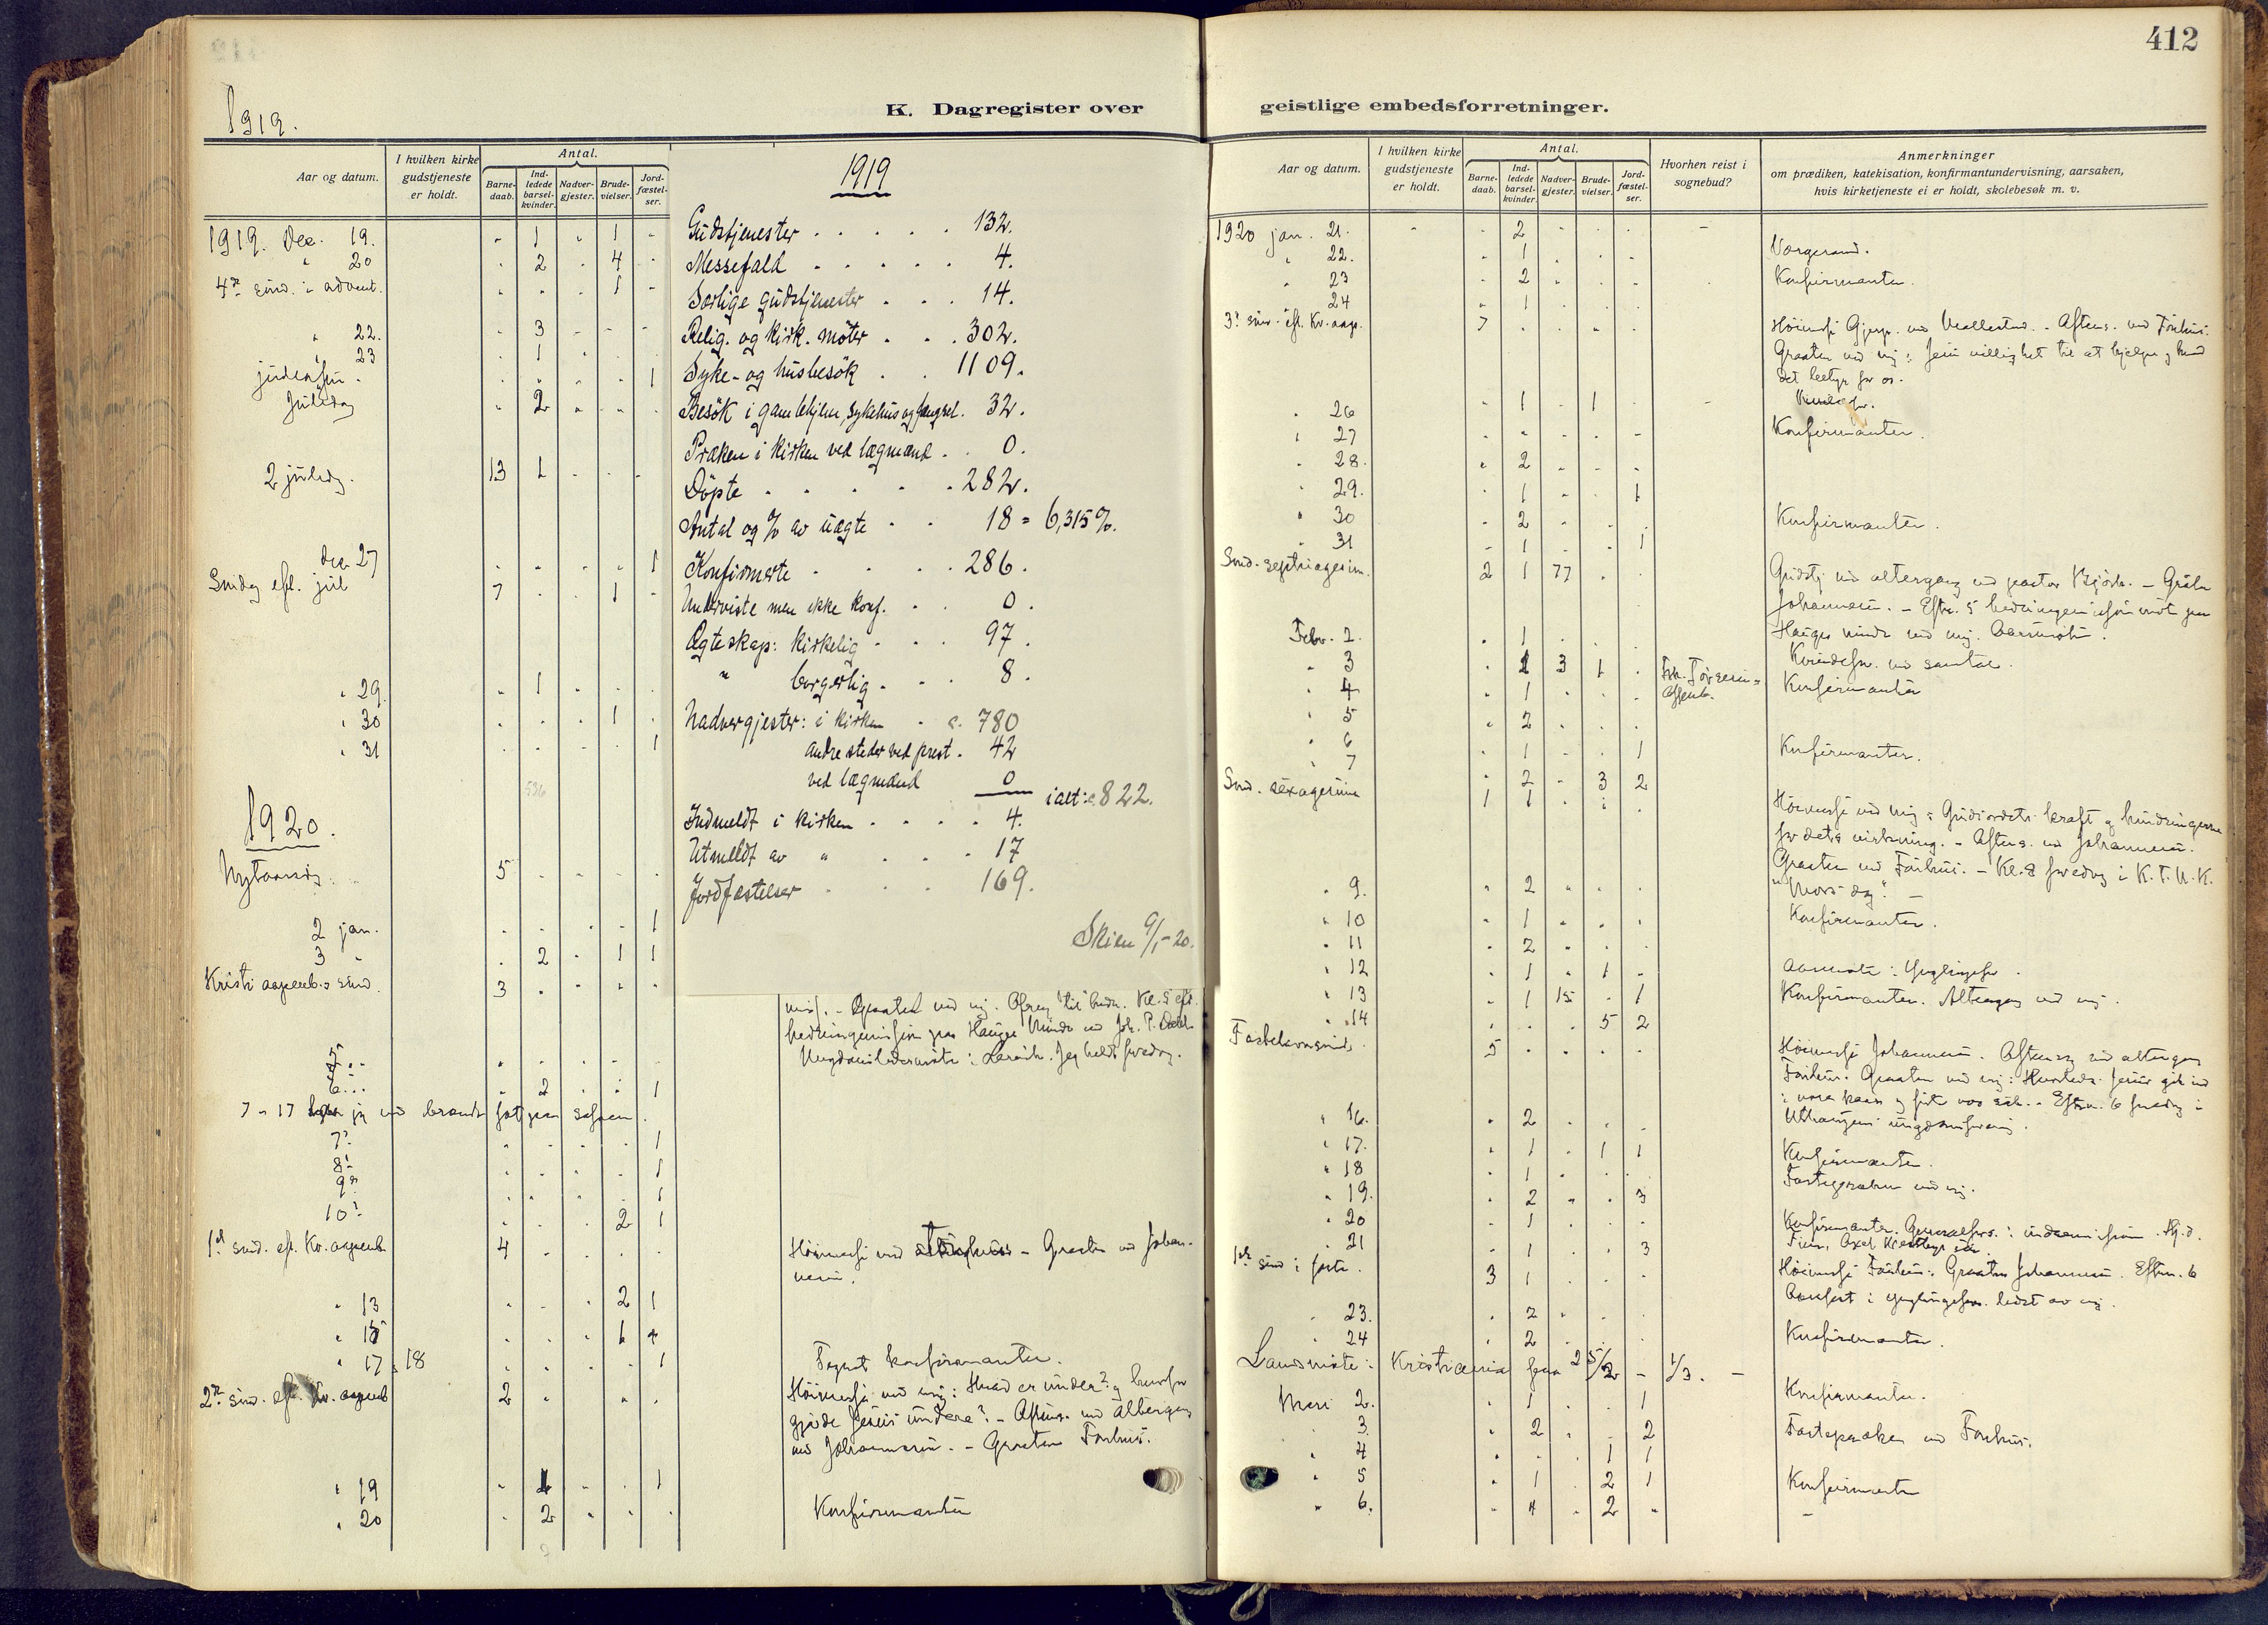 412
1919.
K. Dagregister over
geistlige embedsforretninger.
Aar og datum.
I hvilken kirke gudstjeneste er holdt.
Antal.
Barne-daab.
Ind-ledede barsel-kvinder.
Nadver-gjester.
Brude-vielser.
Jord-fæstel-ser.
1919. Dec. 19. " 1 " 1 -
" 20 . 2 . 4 -
4de sønd. i advent. . . . 1 -
" 22. . 3 - - -
" 23 . 1 . . .
juleaften. . . . . 1
Juledag " 2 " - .
2 juledg. 13 1 - - -
Dec 27 . . . . 1
Søndag eft. jul 7 . . 1 -
" 29. . 1 . . .
" 30 . . . 1 .
" 31 . . . . 1
536
1920.
Nytaarsdg. 5 . . . .
2 jan. . . . . 1
3 " . 2 . 1 1
Kristi aapenb.s sønd. 3 . . . .
5. "
6. . . . 2 . . 1
7 - 17 laa jeg med brændt fot paa sofaen.
7. . . . . 1
8. . . . . 1
9. . . . . 1
10. . . . 2 1
1st sønd. eft. Kr. aapenb. 4 . . . .
" 13 . . . 2 1
" 15 . . . 1 4
" 17, 18 . . . . 1
2n sønd. eft. Kr. aapenb 2 . . . .
" 19 . 1 . . 1
" 20 . 2 . . .
1919
Gudstjenester . . . . . 132.
Messefald . . . . . 4.
Særlige gudstjenester . . . 14.
Relig. og kirk. møter . . . 302.
Syke- og husbesök . . 1109.
Besök i gamlehjem, sykehus og fængsel. 32.
Præken i kirken ved lægmænd . . 0.
Döpte . . . . . . 282.
Antal og % av uægte . . 18 = 6,315%.
Konfirmerte . . . . 286.
Underviste men ikke konf. . . 0.
Ægteskap: kirkelig . . . 97.
" borgerlig . . . 8.
Nadvergjester: i kirken . c. 780
andre steder ved prest . 42
ved lægmænd 0
ialt: c. 822.
Indmeldt i kirken . . . . 4.
Utmeldt av " . . . . 17
Jordfæstelser . . . 169.
Skien 9/1-20.
Ungdomsledermøte i Larvik. Jeg holdt foredrag.
Höimesse ved Farhus - Graaten ved Johan-
nesen.
Tapart konfirmanter.
Höimesse ved mig: Hvad er under? og hvorfor
gjorde Jesus undere? - Aftens. med altergang
ved Johannesen. - Graaten Farhus.
Konfirmanter
Aar og datum.
I hvilken kirke gudstjeneste er holdt.
Antal.
Barne-daab.
Ind-ledede barsel-kvinder.
Nadver-gjester.
Brude-vielser.
Jord-fæstel-ser.
Hvorhen reist i sognebud?
Anmerkninger
om prædiken, katekisation, konfirmantundervisning, aarsaken,
hvis kirketjeneste ei er holdt, skolebesøk m. v.
1920 jan. 21. - . 2 . . . -
" 22. . 1 . . . Værgeraad.
" 23 . 2 . . . Konfirmanter.
" 24 . 1 . . .
3. søn. eft. Kr. aap. 7 . . . .
Graaten ved mig: Jesu villighet til at hjælpe og hvad
det betyr for os.
" 26 . 1 . 1 .
" 27 . . . . . Konfirmanter.
" 28. . 2 . . .
" 29. . 1 . . 1
" 30 . 2 . . . Konfirmanter.
" 31 . 1 . . 1
Sønd. septuagesim. 2 1 77 . . Gudstj. med altergang ved pastor Bjørk. - Graaten
Johannesen. - Efterm. 5 hedningemisjonsmøte paa
Hauges minde ved mig. Aarsmøte.
Febr. 2. . 1 . . . Kvindefor. med samtale.
" 3 . 1 3 1 .
" 4 . 1 . . . Konfirmanter
" 5 . 2 . . .
" 6 . 1 . . 1 Konfirmanter.
" 7 . 2 - 3 2
Sønd. sexagesima 1 1 . . .
Höimesse ved mig: Gudsordets kraft og hindringerne
for dets virkning. - Aftens. ved Johannesen.
Graaten ved Farhus. - Kl. 8 foredrag i K.F.U.K.
"Mors dag". -
" 9. . 2 . . .
" 10 . 1 . . . Konfirmanter.
" 11 . 2 . . .
" 12 . 1 . 1 . Aarsmøte i Ynglingefor.
" 13 . 1 15 . 1 Konfirmanter. Altergang ved mig.
" 14 . . . 5 2
Fastelavnssønd. 5 . . . .
Höimesse Johannesen. Aftensang med altergang
Farhus. Graaten ved mig: Hvorledes Jesus gik ind
i vore kaar og frelste vor sak. - Efterm. 6 foredrag i
ungdomsforening.
" 16. . 2 . . .
" 17. . 1 . 1 1 Konfirmanter.
" 18 . 1 . . . Fastepræken ved mig.
" 19. . 2 . . 3
" 20 . 1 . . . Konfirmanter. Generalfors. i indremisjon.
" 21 . 1 . . 3
1ste sønd i faste. 3 1 . . . Höimesse Farhus. Graaten Johannesen. Efterm. 6
Aarsfest i ynglingefor. ledet av mig.
" 23. . 2 . . .
" 24 . 2 . . . Konfirmanter.
Landsmøte i Kristiania fra 25/2 - 1/3. -
Mars 2. . 1 . . 1 Konfirmanter.
3. . 2 . . 2 Fastepræken ved Farhus.
" 4 . . . 1 1
" 5 . 1 . 2 1 Konfirmanter
" 6. . 4 . 2 .